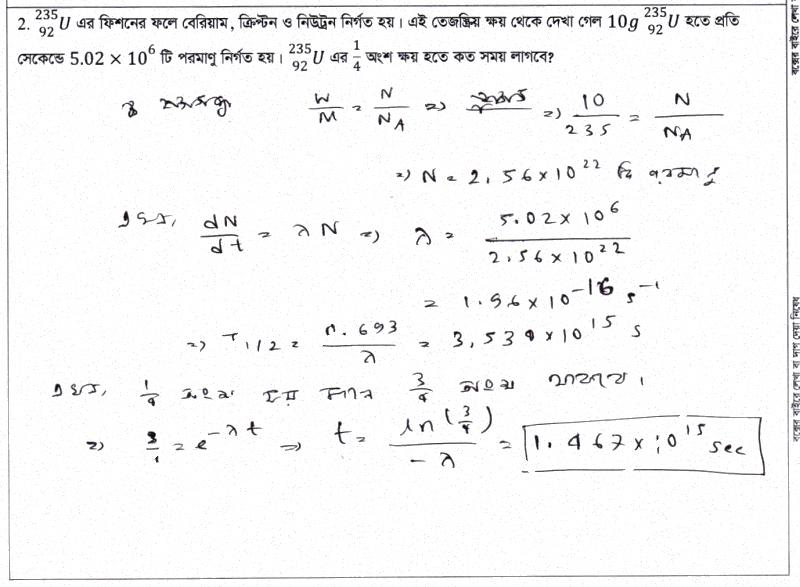 2. ²³⁵₉₂U এর ফিশনের ফলে বেরিয়াম, ক্রিপ্টন ও নিউট্রন নির্গত হয়। এই তেজস্ক্রিয় ক্ষয় থেকে দেখা গেল 10g ²³⁵₉₂U হতে প্রতি
সেকেন্ডে 5.02 × 10⁶ টি পরমাণু নির্গত হয়। ²³⁵₉₂U এর 1/4 অংশ ক্ষয় হতে কত সময় লাগবে?
W/M = N/N_A => => 10/235 = N/N_A
=> N = 2.56×10²² টি পরমাণু
এখন, dN/dt = λN => λ = 5.02×10⁶/2.56×10²²
= 1.96×10⁻¹⁶ s⁻¹
=> T1/2 = 0.693/λ = 3.534×10¹⁵ s
এখন, 1/4 অংশ ক্ষয় মানে 3/4 অংশ থাকবে।
=> 3/4 = e^(-λt) => t = ln(3/4)/-λ = 1.467×10¹⁵ sec
বক্সের বাইরে লেখা বা দাগ দেয়া নিষেধ